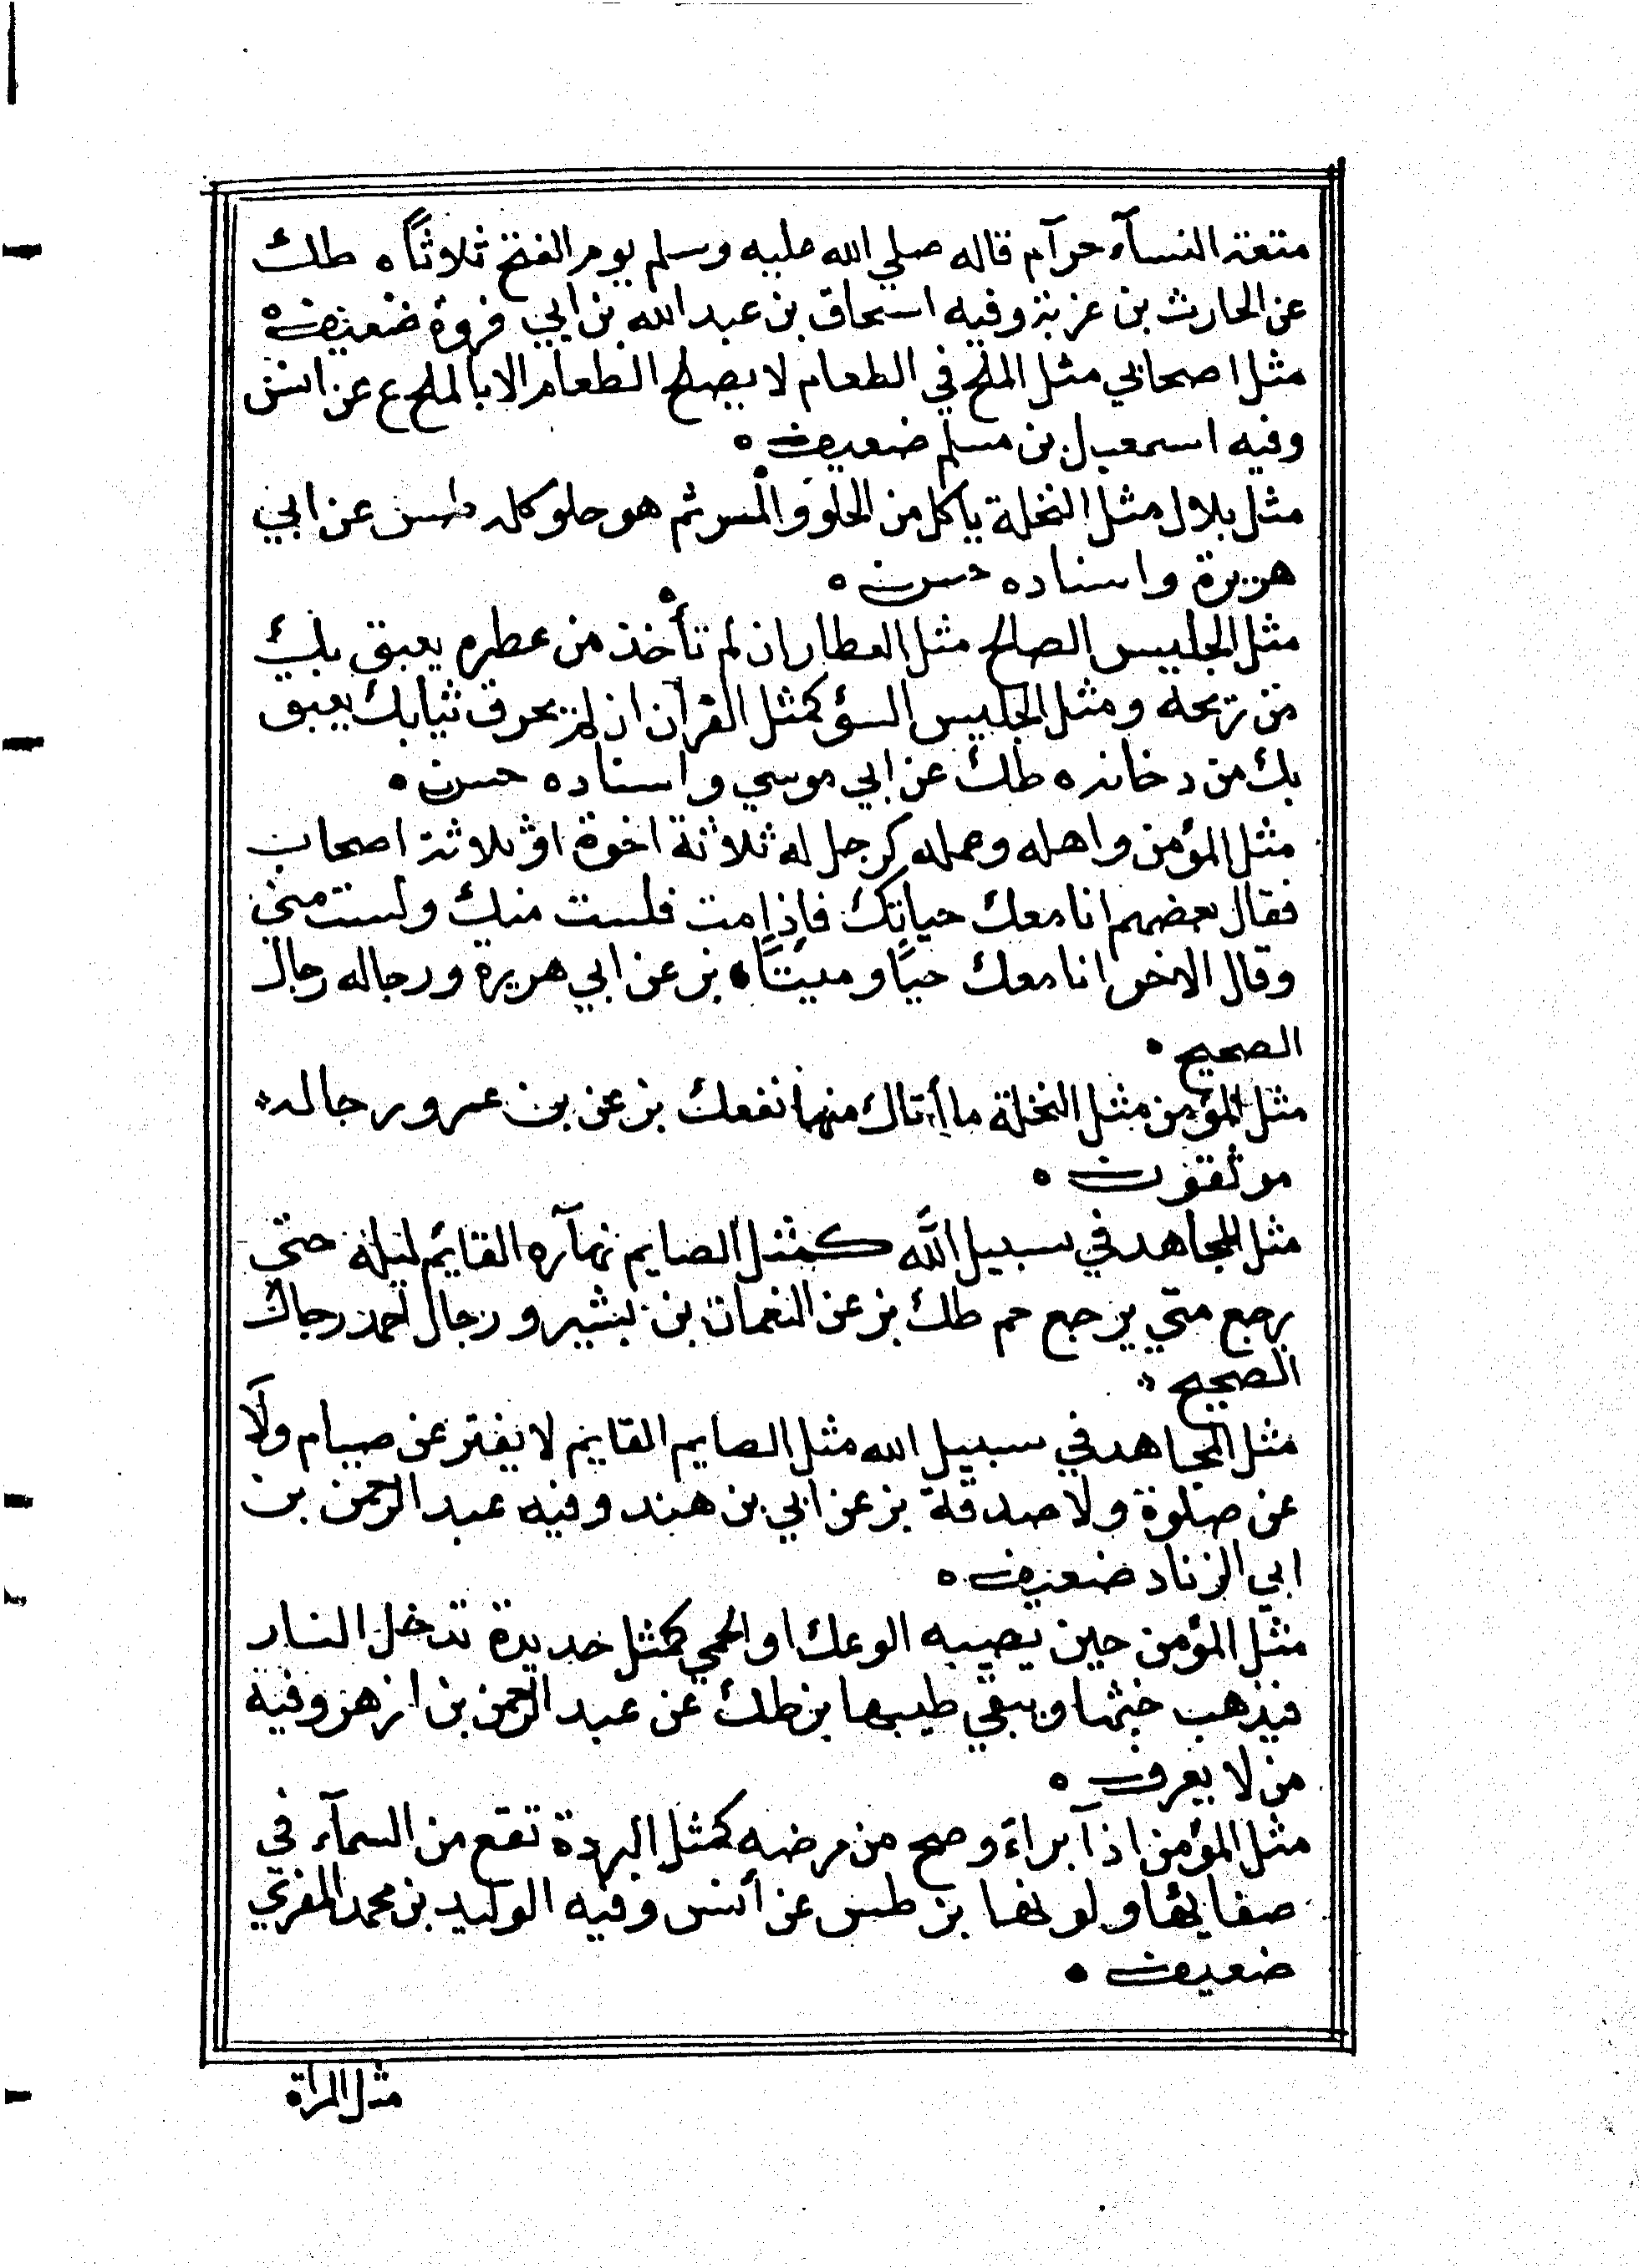 متعة النسآء حرآم قاله صلي الله عليه وسلم يوم الفتح ثلاوثاً ه طك
عن الحارث بن عزية وفيه اسحاق بن عبد الله بن ابي فروة ضعيف ه
مثل اصحابي مثل الملح في الطعام لا يصلح الطعام الا بالملح ع عن انس
وفيه اسمعيل بن مسلم ضعيف ه
مثل بلال مثل النحلة ياكل من الحلو والمر ثم هو حلو كله طس عن ابي
هريرة واسناده حسن ه
مثل الجليس الصالح مثل العطار ان لم تأخذ من عطره يعبق بك
من ريحه ومثل الجليس السؤ كمثل القرآن ان لم يحرق ثيابك يعبق
بك من دخانه ه طك عن ابي موسي واسناده حسن ه
مثل المؤمن واهله وعمله كرجل له ثلاثة اخوة او ثلاثة اصحاب
فقال بعضهم انا معك حياتك فاذا مت فلست منك ولست مني
وقال الاخر انا معك حياً وميتاً ه بز عن ابي هريرة ورجاله رجال
الصحيح ه
مثل المؤمن مثل النخلة ما أتاك منها نفعك بز عن بن عمر ورجاله
موثقون ه
مثل المجاهد في سبيل الله كمثل الصايم نهآره القايم ليله حتي
يرجع متي يرجع حم طك بز عن النعمان بن بشير ورجال احمد رجال
الصحيح ه
مثل المجاهد في سبيل الله مثل الصايم القايم لا يفتر عن صيام ولا
عن صلوة ولا صدقة بز عن ابي بن هند وفيه عبد الرحمن بن
ابي الزناد ضعيف ه
مثل المؤمن حين يصيبه الوعك او الحمي كمثل حديدة تدخل النار
فيذهب خبثها ويبقي طيبها بز طك عن عبد الرحمن بن ازهر وفيه
من لا يعرف ه
مثل المؤمن اذآ براء وصح من مرضه كمثل البردة تقع من السمآء في
صفايها ولونها بز طس عن أنس وفيه الوليد بن محمد المقري
ضعيف ه
مثل المراة